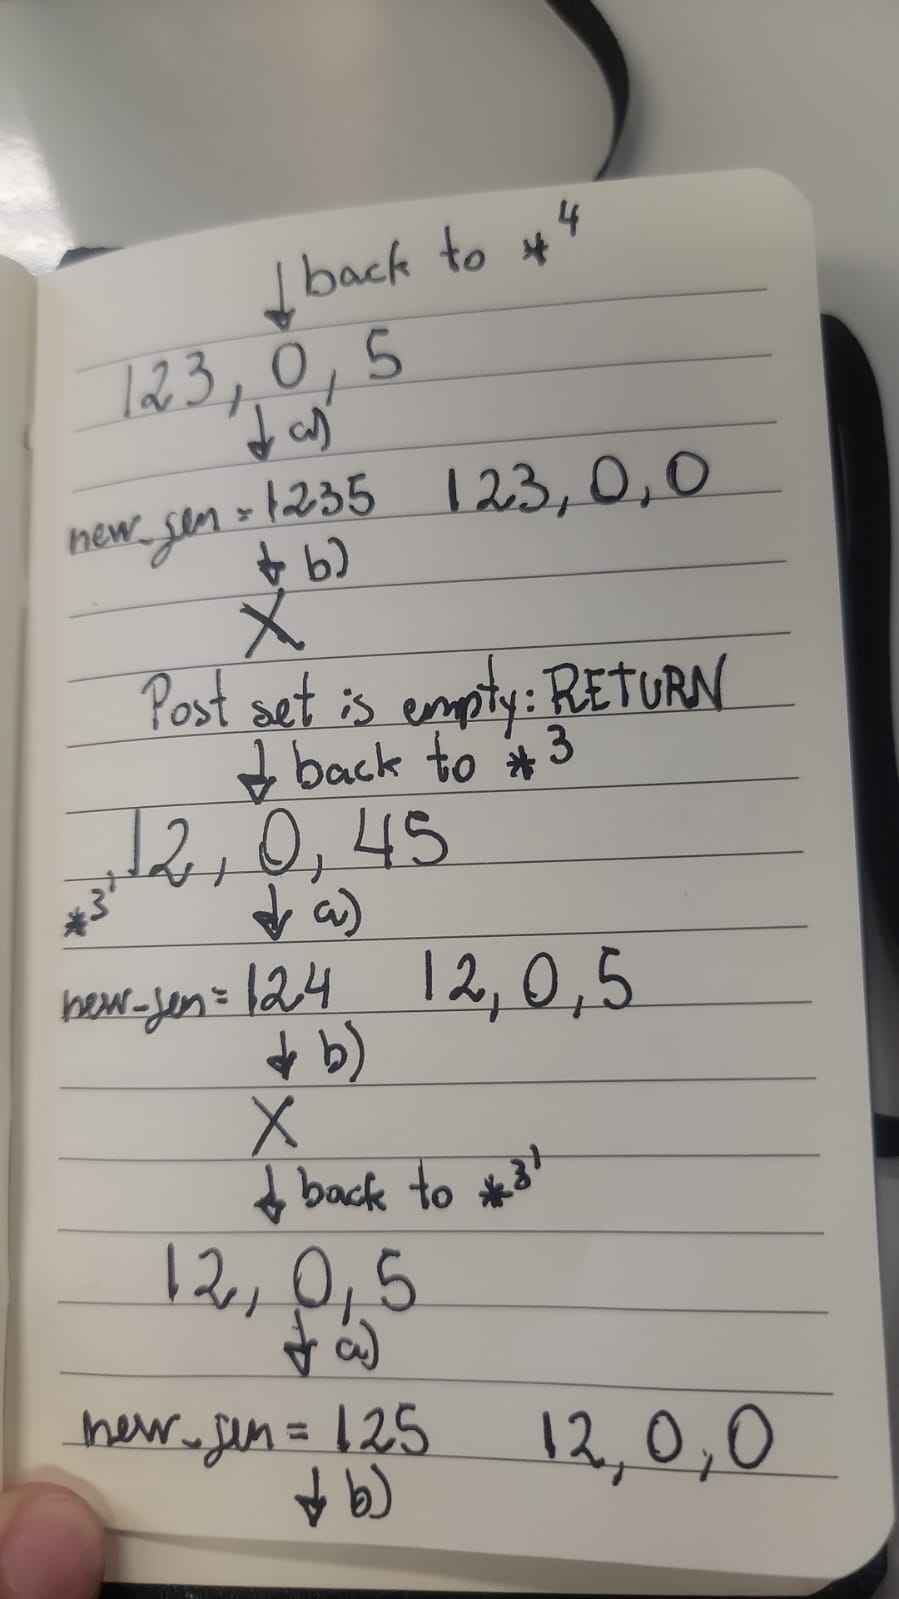 ↓ back to *4
123, 0, 5
↓ a)
new_gen = 1235 123, 0, 0
↓ b)
X
Post set is empty: RETURN
↓ back to *3
12, 0, 45
*3'
↓ a)
new_gen = 124 12, 0, 5
↓ b)
X
↓ back to *3'
12, 0, 5
↓ a)
new_gen = 125 12, 0, 0
↓ b)